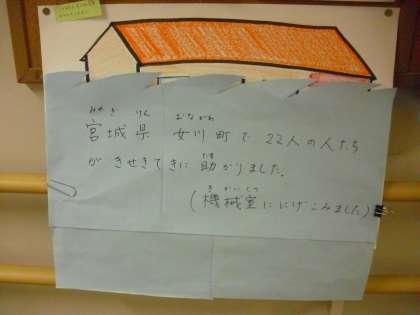 みやぎ けん おながわ
宮城県 女川町で 22人の人たち
たす
が きせきてきに 助かりました。
きかいしつ
(機械室ににげこみました)